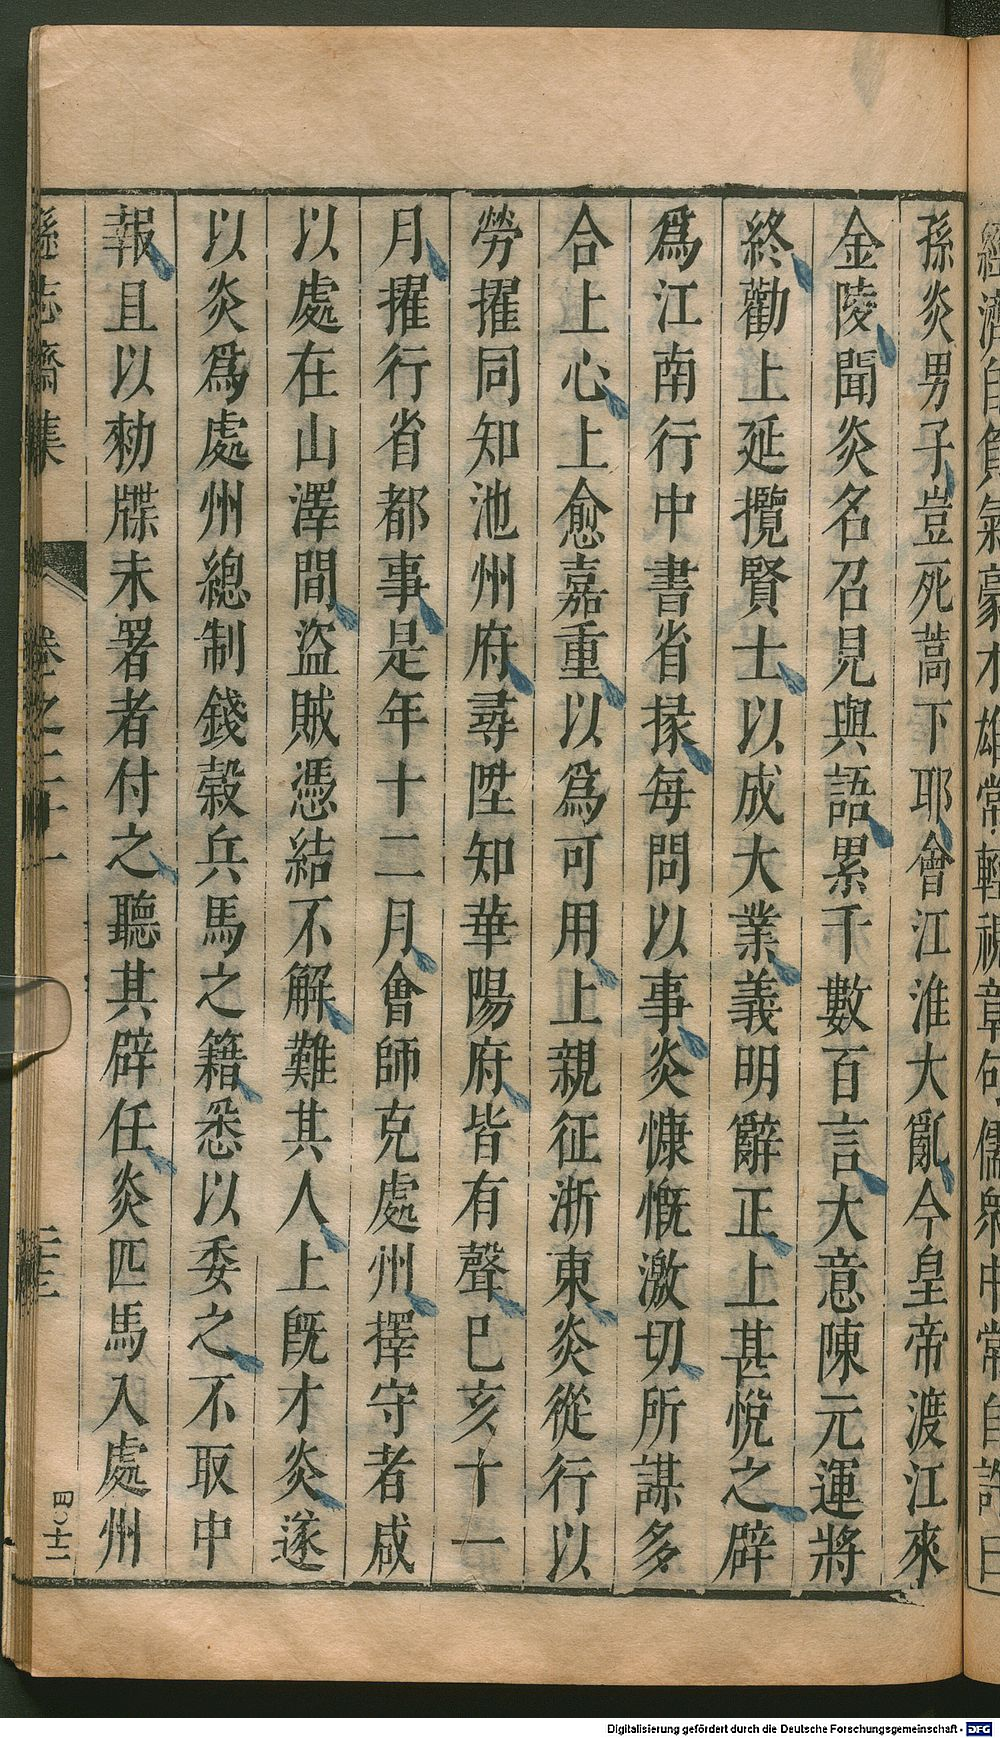 孫炎男子豈死蒿下耶會江淮大亂今皇帝渡江來
金陵聞炎名召見與語累千數百言大意陳元運將
終勸上延攬賢士以成大業義明辭正上甚悅之辟
爲江南行中書省掾每問以事炎慷慨激切所謀多
合上心上愈嘉重以爲可用上親征浙東炎從行以
勞擢同知池州府尋陞知華陽府皆有聲巳亥十一
月擢行省都事是年十二月會師克處州擇守者咸
以處在山澤間盜賊憑結不解難其人上旣才炎遂
以炎爲處州總制錢穀兵馬之籍悉以委之不取中
報且以勑牒未署者付之聽其辟任炎匹馬入處州
遜志齋集 卷之二十一 二十三
四〇十二
Digitalisierung gefördert durch die Deutsche Forschungsgemeinschaft - DFG